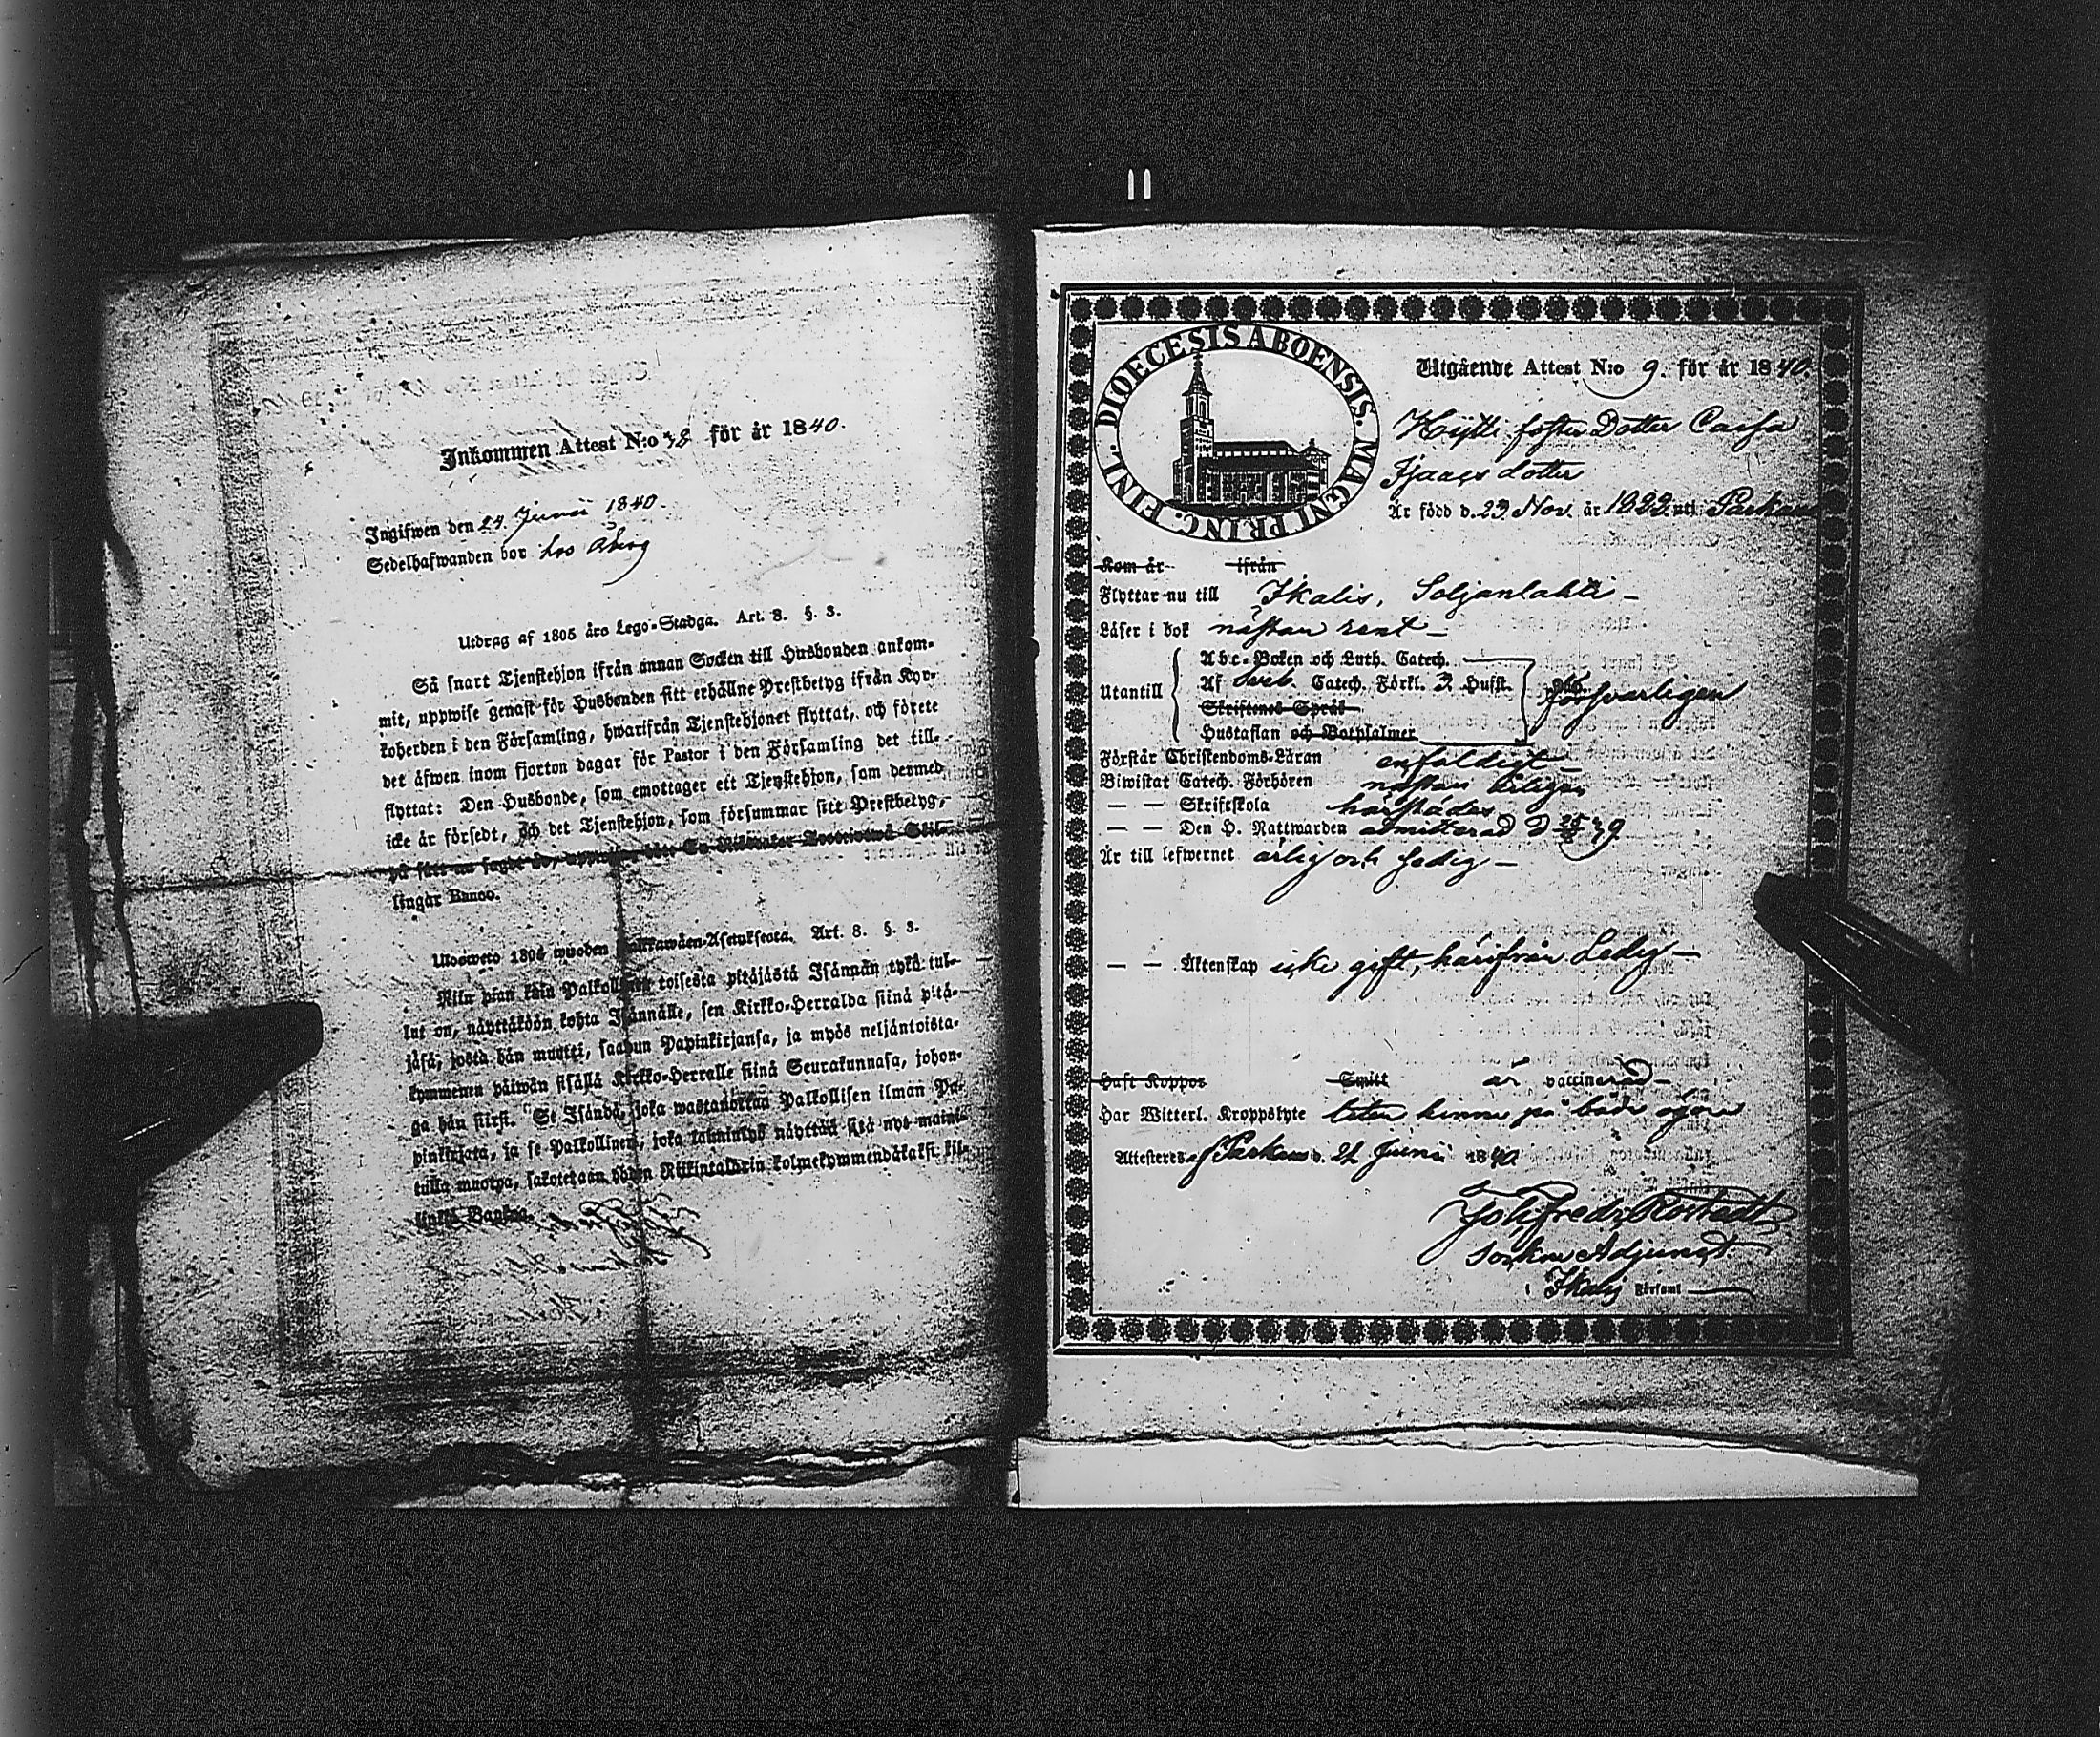 Inkommen Attest N:o 48 för år 1840.
Ingifwen den 24 Junii 1840.
Sedelhafwanden bor hos Åberg
Utdrag af 1805 års Lego-Stadga. Art. 8. §. 3.
Så snart Tjenstehjon ifrån annan Socken till Husbonden ankom-
mit, uppwise genast för Husbonden sitt erhållne Prestbetyg ifrån Kyr-
koherden i den Församling, hwarifrån Tjenstehjonet flyttat, och förete
det äfwen inom fjorton dagar för Pastor i den Församling det till-
flyttat: Den Husbonde, som emottager ett Tjenstehjon, som dermed
icke är försedt, och det Tjenstehjon, som försummar sitt Prestbetyg,
på sätt nu sagdt är, uppwisa, böte En Riksdaler Skil-
lingar Banco.
Ulosweto 1805 wuoden Palkkawäen-Asetuksesta. Art. 8. §. 3.
Niin pian kuin Palkollinen toisesta pitäjästä Isännän tykö tul-
lut on, näyttäköön kohta Isännälle, sen Kirkko-Herralda siinä pitä-
jäsä, josta hän muutti, saadun Papinkirjansa, ja myös neljäntoista-
kymmenen päiwän sisällä Kirkko-Herralle siinä Seurakunnasa, johon-
ga hän siirsi. Se Isändä, joka wastanottaa Palkollisen ilman Pa-
pinkirjata, ja se Palkollinen, joka laiminlyö näyttää sitä nys mainit-
tulla muotoa, sakotetaan yhden Riikintalarin kolmekymmendäkaksi kil-
lingiä Bankoa.
11
DIOECESIS ABOENSIS. MAGNI PRINC. FINL.
Utgående Attest N:o 9. för år 1840.
foster Dotter Caisa
Isaacs dotter
Är född d. 23 Nov. år 1822 uti Parkano
Kom år ifrån
Flyttar nu till Ikalis, Soljanlahti
Läser i bok nästan rent
Utantill
Abc-Boken och Luth. Catech.
Af Sveb. Catech. Förkl. 3. Hufst.
Skriftenes Språk
Hustaflan och Botpsalmer
försvarligen
Förstår Christendoms-Läran enfaldigt
Biwistat Catech. Förhören nästan årligen
— — Skriftskola härstädes
— — Den H. Nattwarden admitterad d
Är till lefwernet ärlig och sedig
— — Äktenskap icke gift, härifrån Ledig
Haft Koppor Smitt är vaccinerad
Har Witterl. Kroppslyte liten hinna på både ögon
Attesteras af Parkano d. 21 Junii 1840.
Adjunct
i Ikalis Församl